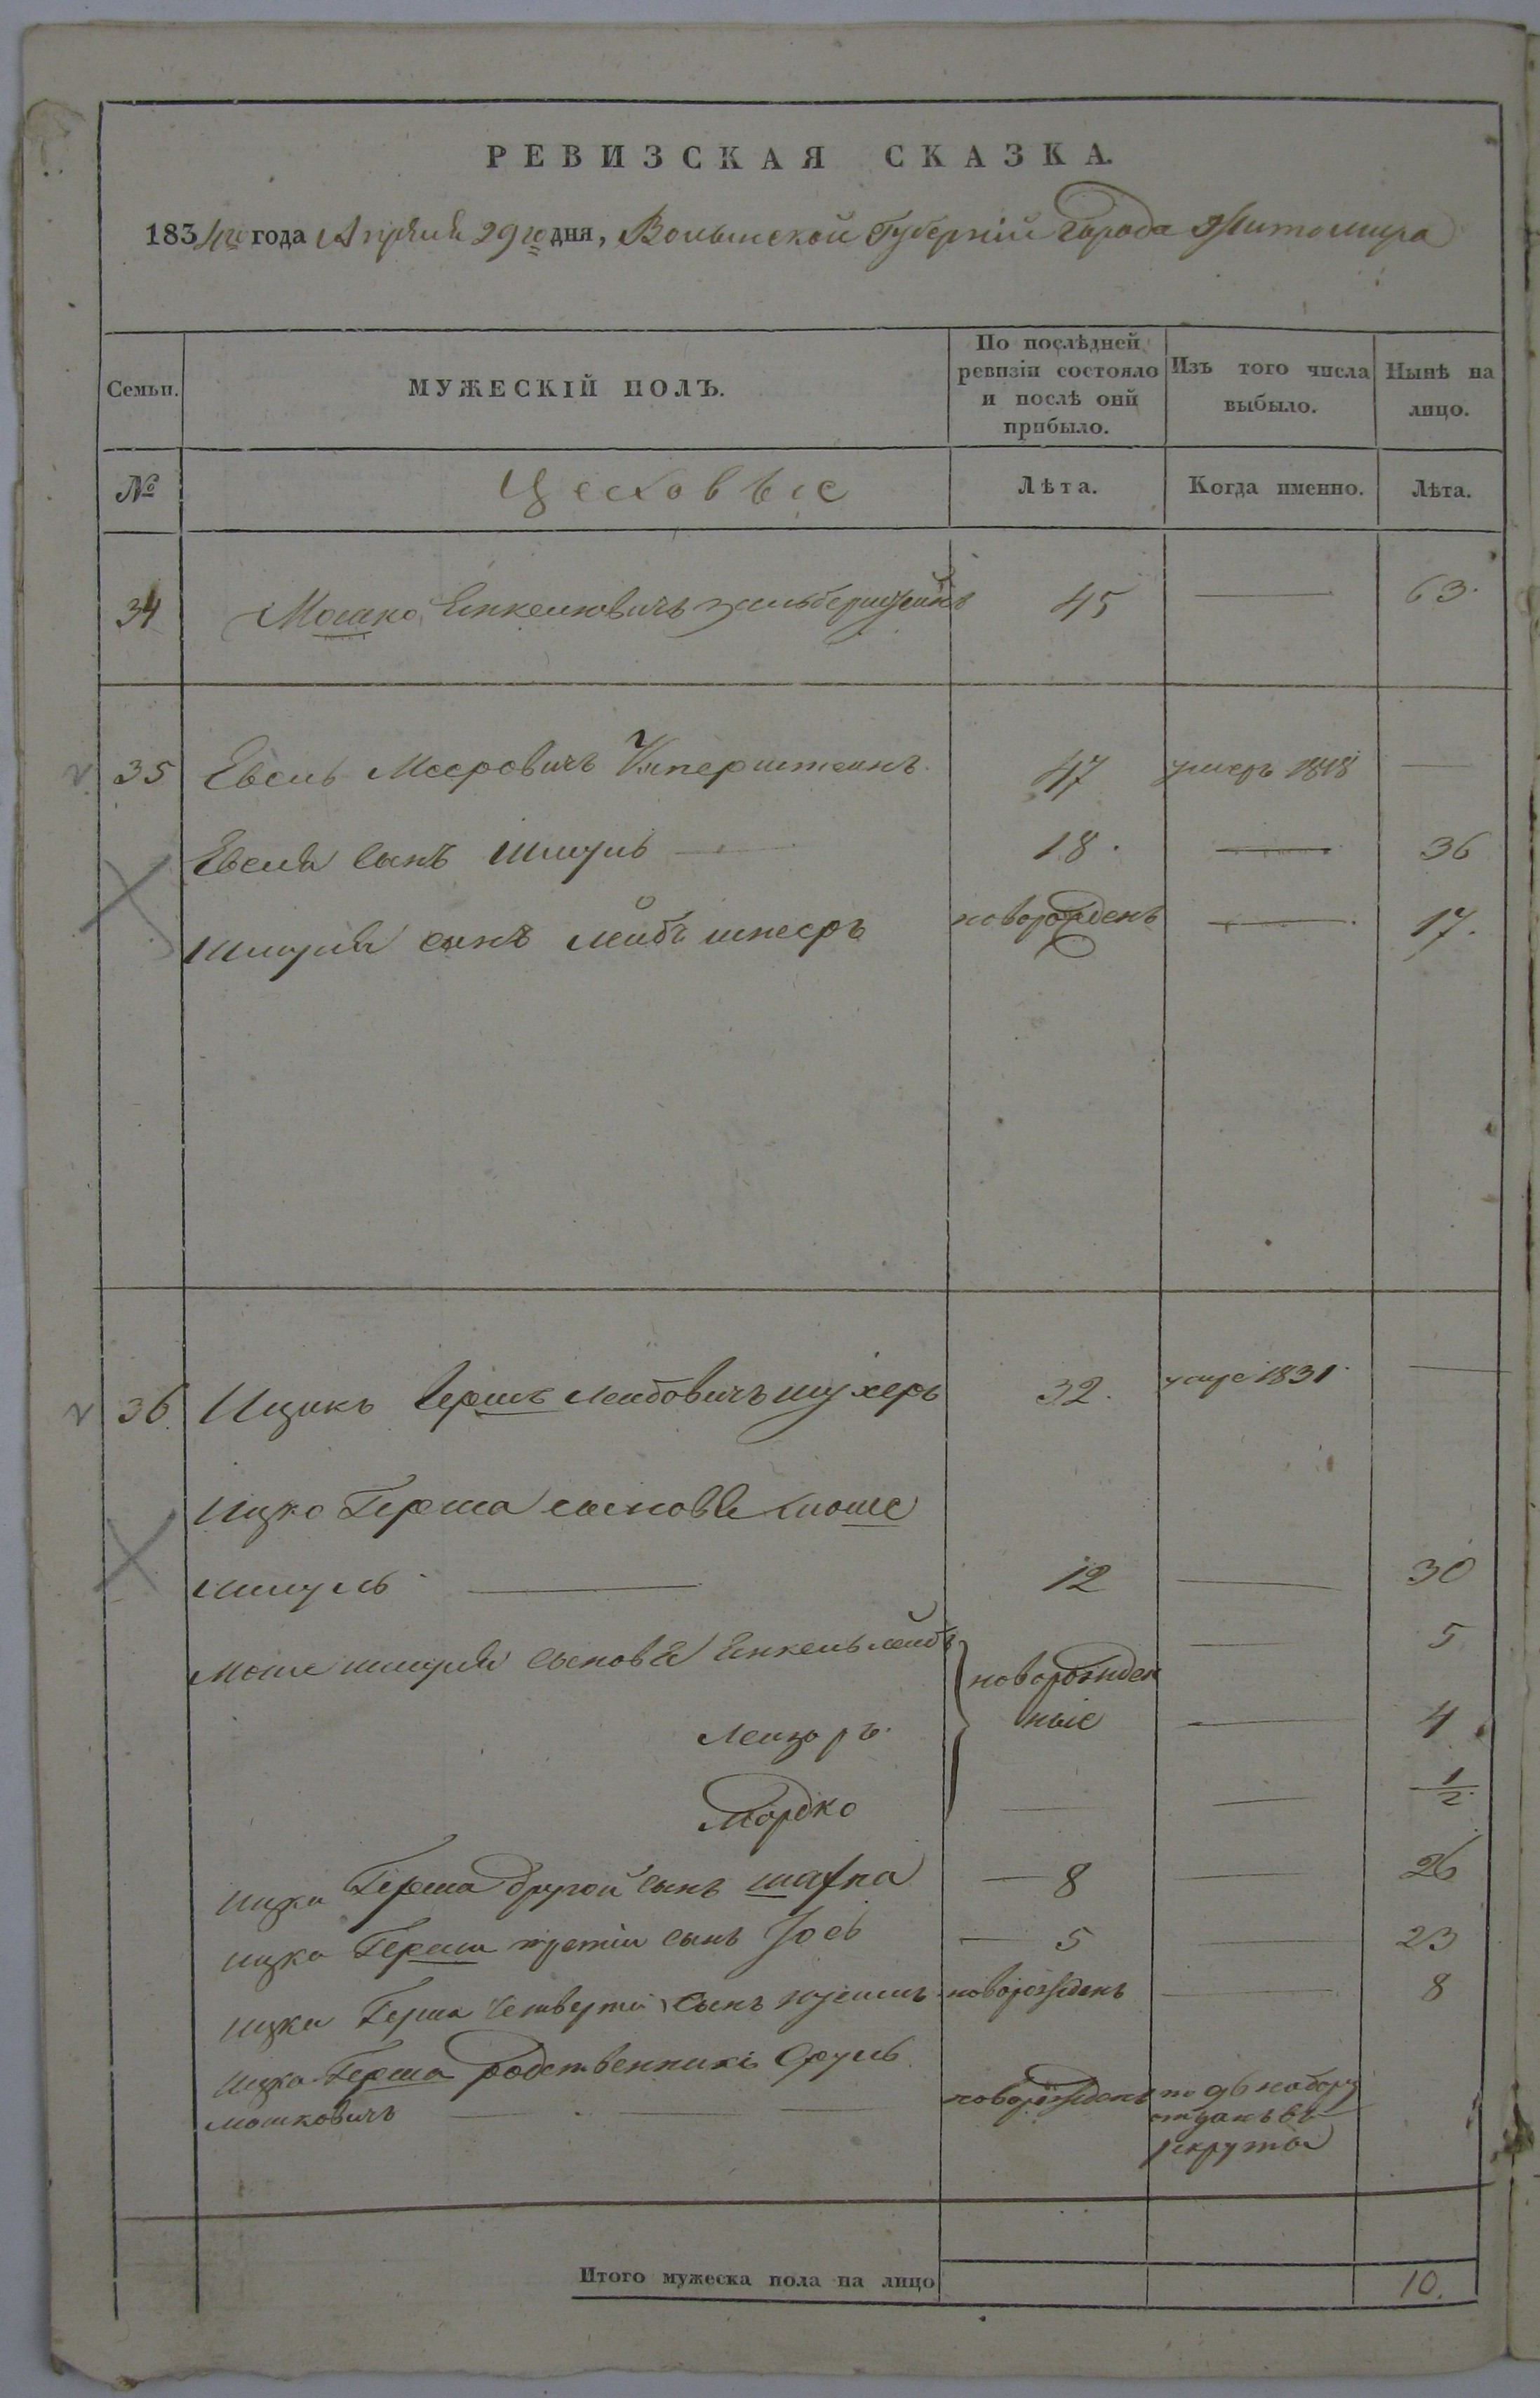 РЕВИЗСКАЯ СКАЗКА.
1834го года Апреля 29го дня, Волынской Губернии Города Житомира
Семьи. МУЖЕСКІЙ ПОЛЪ. По послѣдней ревизіи состояло и послѣ оній прибыло. Изъ того числа выбыло. Нынѣ на лицо.
№ Цеховые Лѣта. Когда именно. Лѣта.
34 Мошко Енкелювичъ 45 63.
35 Евель Мееровичъ 47 умеръ 1818
Евеля сынъ Шмуль 18. 36
Шмуля сынъ Лейбъ новорожденъ 17.
36 Ицикъ Гершъ Лейбовичъ шухеръ 32. 1831
Ицко Герша сыновя Моше
Шмуль 12 30
Моше шмуля сыновя Енкель лейбъ 5
новорожден
ные
Лейзоръ. 4
Мордко 1/2
Ицка Герша другой сынъ 8 26
Ицка Герша третій сынъ Іось 5 23
Ицка Герша четвертій сынъ новорожденъ 8
Ицка Герша родственникъ Сруль
мошковичъ новорожденъ по 96 набору
отданъ въ
рекруты
Итого мужеска пола на лицо 10.